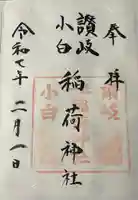 奉拝
讃岐
小白
稲荷神社
令和七年二月一日
小白